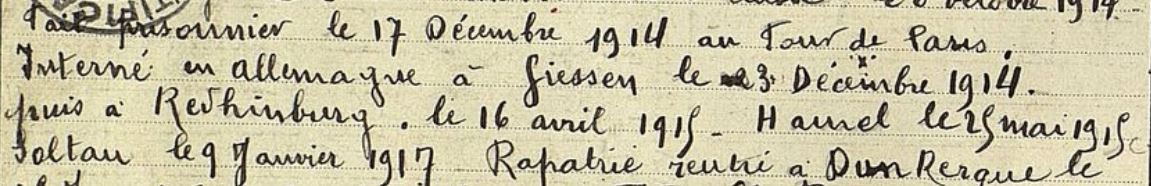 le 8 octobre 1914.
Fait prisonnier le 17 Décembre 1914 au Four de Paris.
Interné en allemagne à Giessen le 23 Décembre 1914.
puis à Rethinburg. le 16 avril 1915 - Hamel le 25 mai 1915
Soltau le 9 Janvier 1917 Rapatrié rentré à DunKerque le